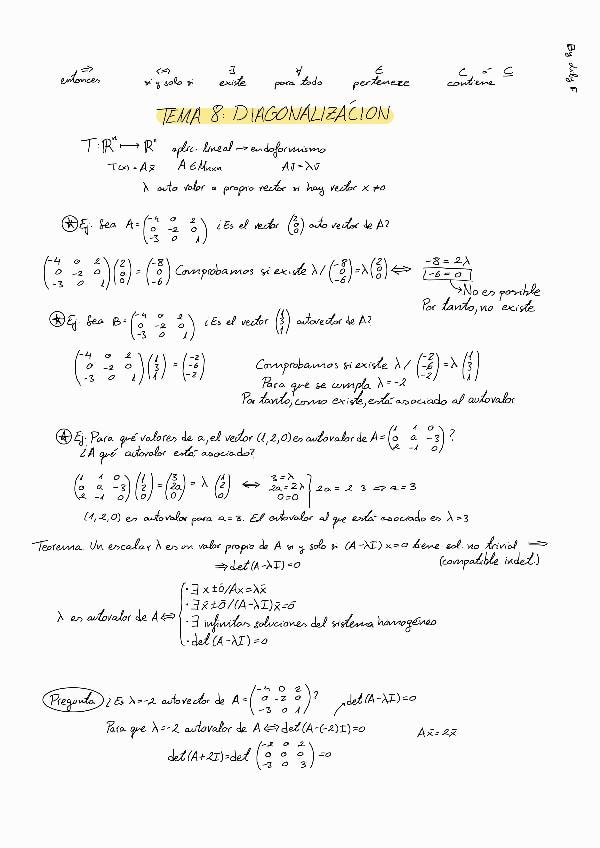 ⇒ (⇔) ∃ ∀ ∈ ⊂ ó ⊆
entonces si y solo si existe para todo pertenece contiene
TEMA 8: DIAGONALIZACIÓN
T: ℝⁿ ⟼ ℝⁿ aplic. lineal → endoformismo
T(x) = Ax̄ A ∈ Mnxn Av̄ = λv̄
λ auto valor o propio vector si hay vector x ≠ 0
Ej: Sea A = (-4 0 2; 0 -2 0; -3 0 1) ¿Es el vector (2; 0; 0) auto vector de A?
(-4 0 2; 0 -2 0; -3 0 1)(2; 0; 0) = (-8; 0; -6) Comprobamos si existe λ / (-8; 0; -6) = λ(2; 0; 0) ⟺ -8 = 2λ
-6 = 0
No es posible
Por tanto, no existe
Ej Sea B = (-4 0 2; 0 -2 0; -3 0 1) ¿Es el vector (1; 3; 1) autovector de A?
(-4 0 2; 0 -2 0; -3 0 1)(1; 3; 1) = (-2; -6; -2) Comprobamos si existe λ / (-2; -6; -2) = λ(1; 3; 1)
Para que se cumpla λ = -2
Por tanto, como existe, está asociado al autovalor
Ej: Para qué valores de a, el vector (1, 2, 0) es autovalor de A = (1 1 0; 0 a -3; 2 -1 0)?
¿A qué autovalor está asociado?
(1 1 0; 0 a -3; 2 -1 0)(1; 2; 0) = (3; 2a; 0) = λ(1; 2; 0) ⟺ 3 = λ; 2a = 2λ; 0 = 0 | 2a = 2·3 ⇒ a = 3
(1, 2, 0) es autovalor para a = 3. El autovalor al que está asociado es λ = 3
Teorema. Un escalar λ es un valor propio de A si y solo si (A - λI) x = 0 tiene sol. no trivial ⇒
⇒ det(A - λI) = 0 (compatible indet.)
λ es autovalor de A ⟺ { · ∃ x ≠ ō / Ax = λx̄
· ∃ x̄ ≠ ō / (A - λI)x̄ = ō
· ∃ infinitas soluciones del sistema homogéneo
· det(A - λI) = 0
Pregunta ¿Es λ = -2 autovector de A = (-4 0 2; 0 -2 0; -3 0 1)? det(A - λI) = 0
Para que λ = -2 autovalor de A ⟺ det(A - (-2)I) = 0 Ax̄ = 2x̄
det(A + 2I) = det (-2 0 2; 0 0 0; -3 0 3) = 0